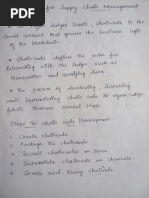 for Supply Chain Management
ledger Fabric, chaincode is the
smart contract that governs the business logic
of the blockchain.
chaincode defines the rules for
interacting with the ledger such as
transactions and querying data.
The process of developing, Installing
and Instantiating chaincode in Hyper ledger
fabric involves several steps.
Steps to chain code Development
1. Create chaincode
2. Package the chaincode
3. Install chaincodes on Peers
4. Instantiate chaincode on channels
5. Invoke and Query chaincode